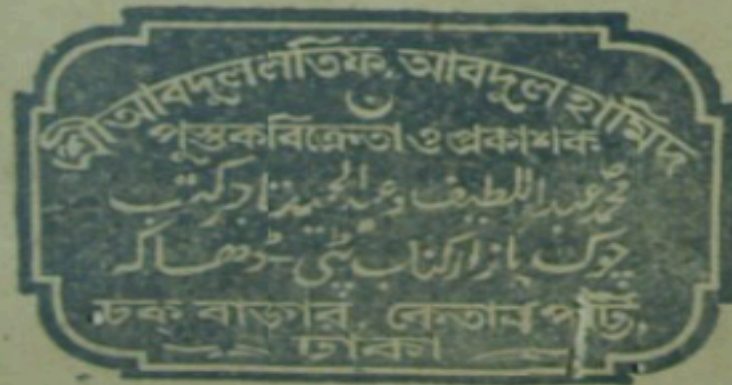 শ্রীআবদুল লতিফ, আবদুল হামিদ
পুস্তকবিক্রেতা ও প্রকাশক
محمد عبد اللطیف وعبد الحمید تاجر کتب
چوک بازار کتاب پٹی - ڈھاکہ
চক্ বাজার, কেতাব পট্টি,
ঢাকা